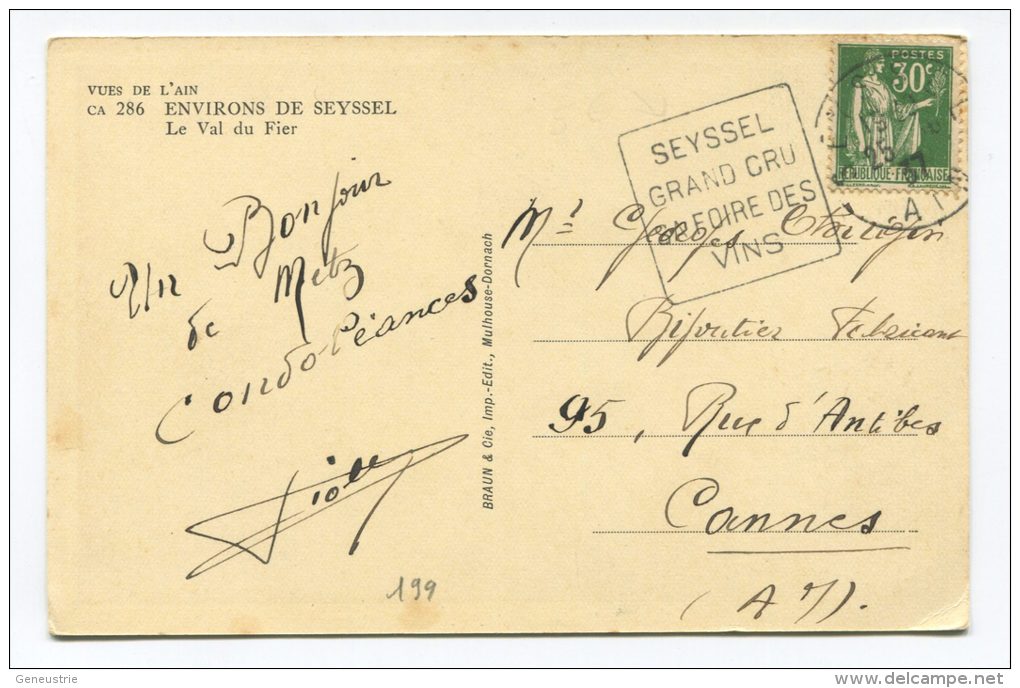 VUES DE L'AIN
CA 286 ENVIRONS DE SEYSSEL
Le Val du Fier
POSTES
30c
REPUBLIQUE FRANCAISE
25 37
AIN
SEYSSEL
GRAND CRU
FOIRE DES
VINS
Un Bonjour
de Metz
Condoléances
BRAUN & Cie, Imp.-Edit., Mulhouse-Dornach
Mr Georges
Bijoutier Fabricant
95, Rue d'Antibes
Cannes
(A M).
199
Geneustrie
www.delcampe.net